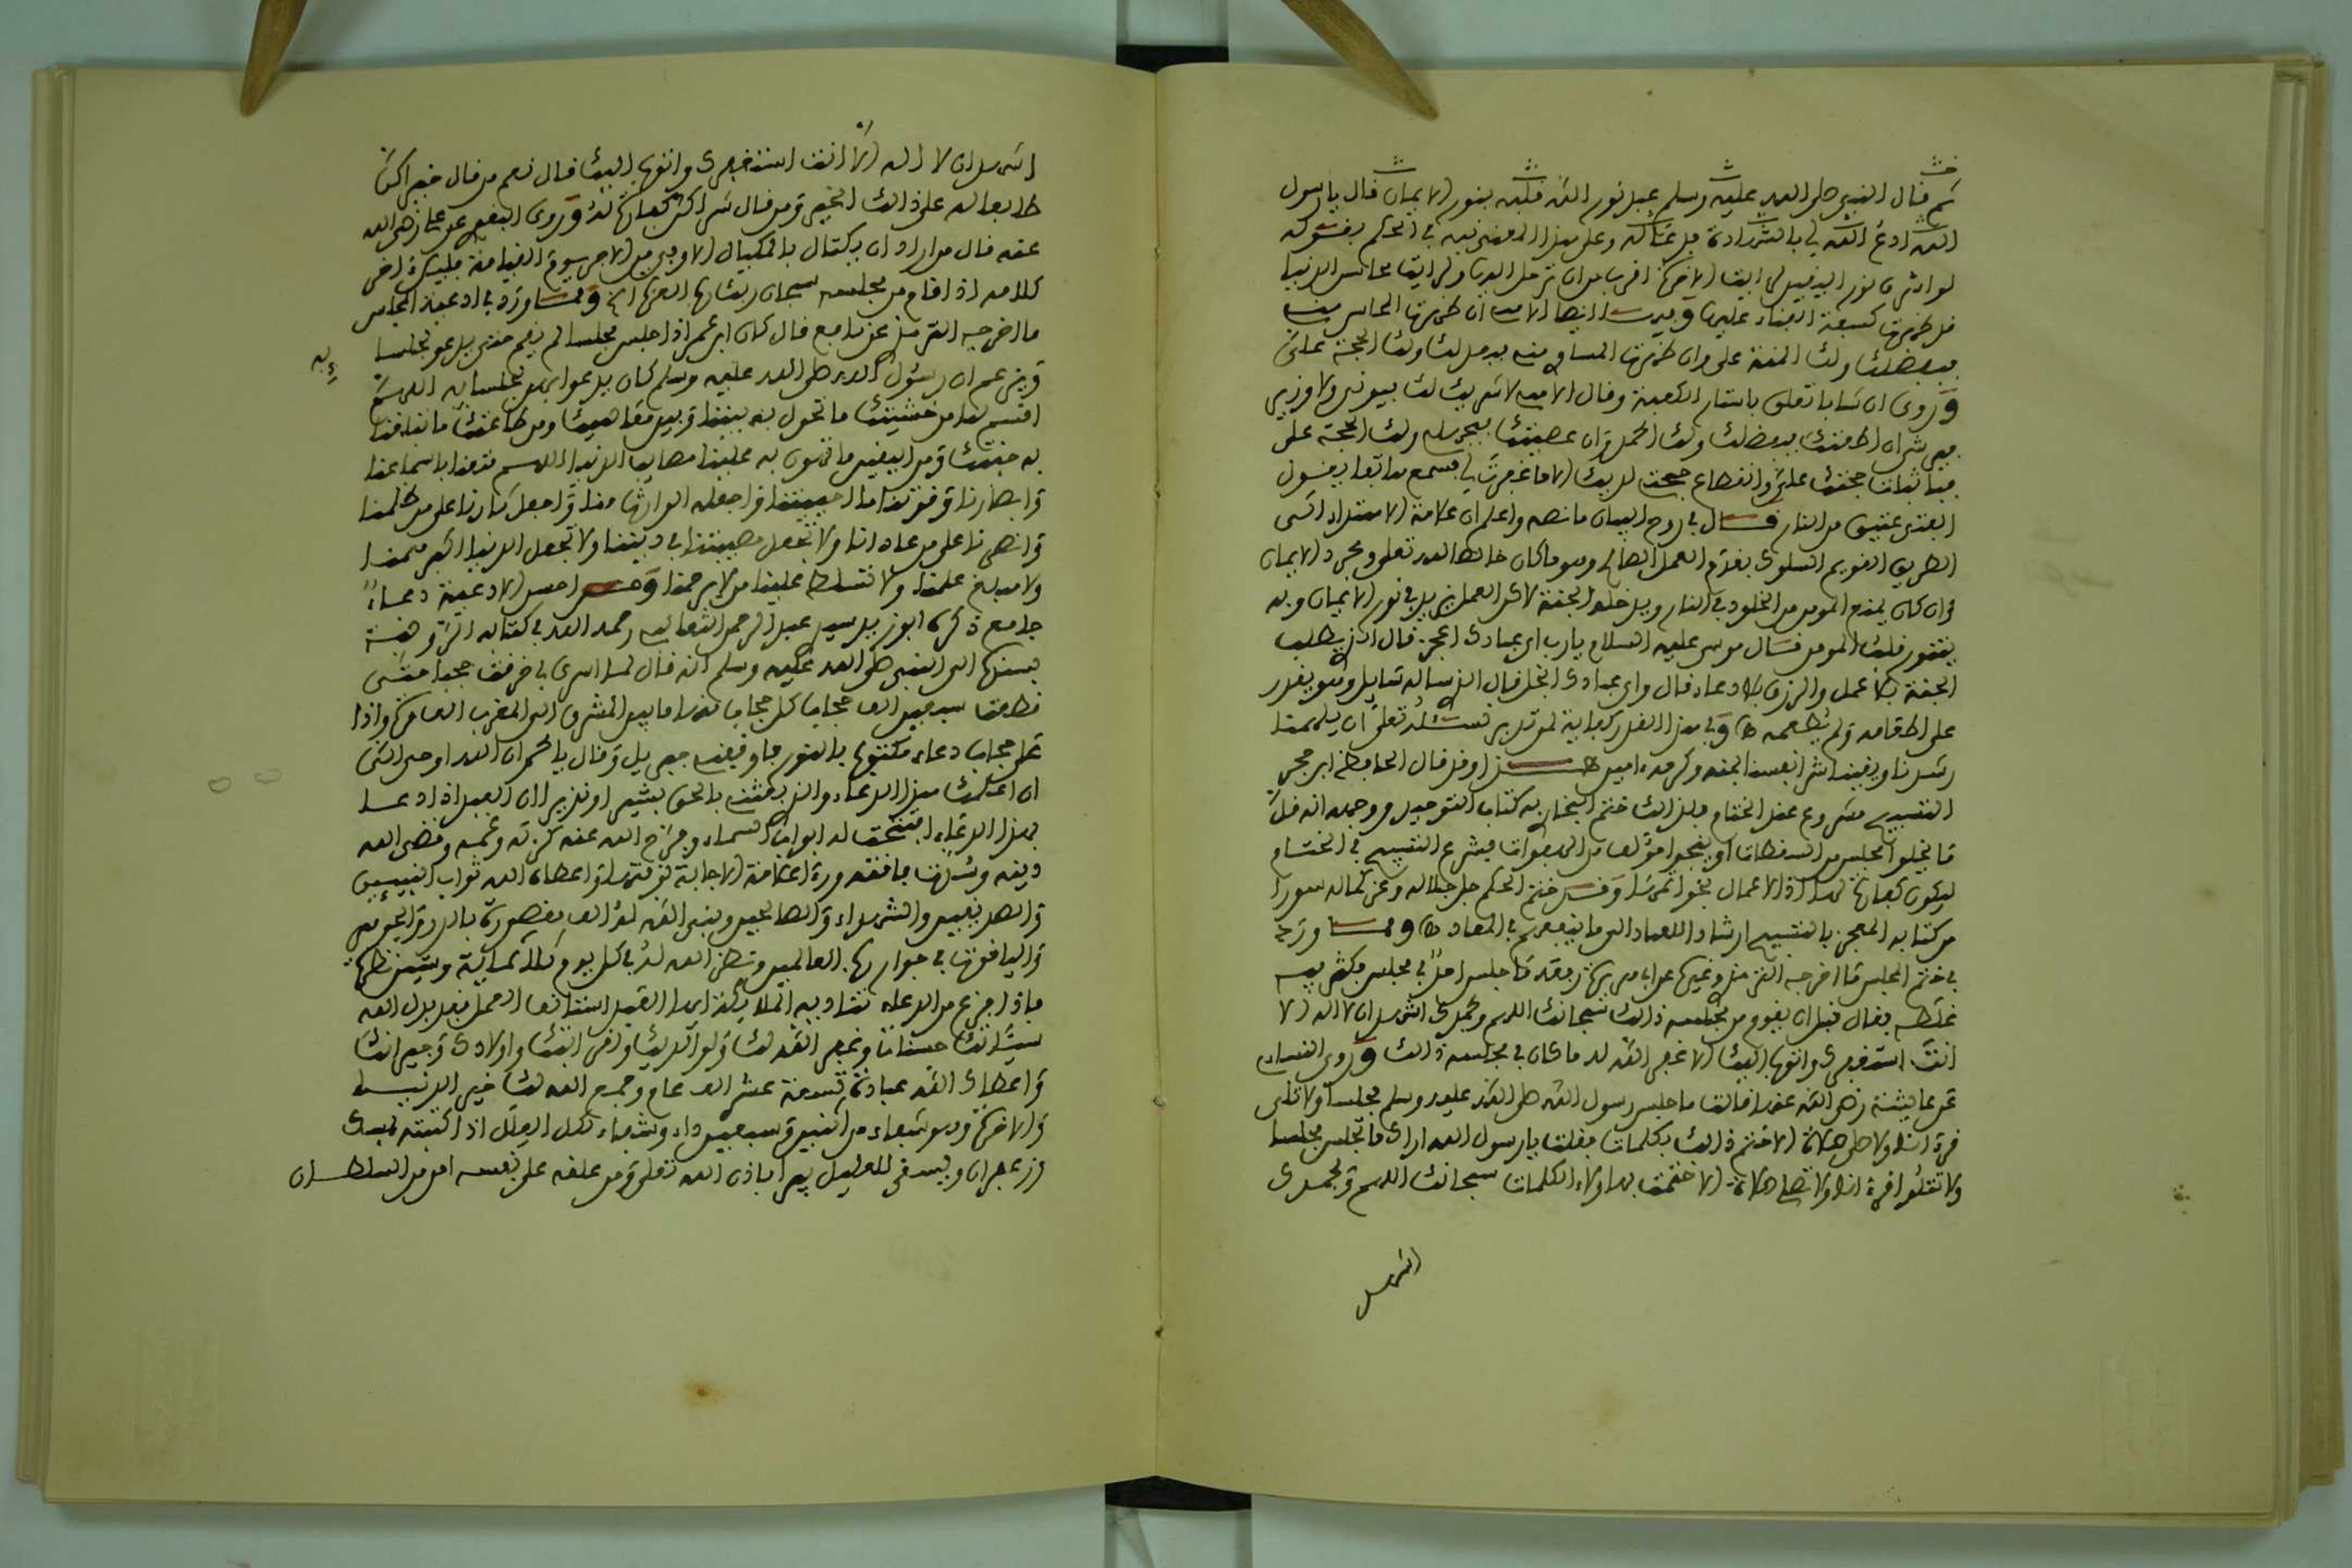 ثم قال النبي صلى الله عليه وسلم عبد نور الله قلبه بنور الايمان قال يا رسول
الله ادع الله لي بالشهادة فدعا له وعلى هذا المعنى نبه في الحكم بقوله
لو اشرق نور اليقين لرأيت الاخرة اقرب من ان ترحل اليها ولرأيت محاسن الدنيا
قد ظهرت كسفة الفناء عليها وفيها ايضا الاهي ان ظهرت المحاسن مني
فبفضلك ولك المنة علي وان ظهرت المساوئ مني فبعدلك ولك الحجة علي
وروي ان شابا تعلق باستار الكعبة وقال الاهي لا شريك لك فيوتى ولا وزير
فيرشى ان اطعتك فبفضلك ولك الحمد وان عصيتك فبجهلي ولك الحجة علي
فباثبات حجتك علي وانقطاع حجتي لديك الا ما غفرت لي فسمع هاتفا يقول
الفتى عتيق من النار قال في روح البيان ما نصه واعلم ان علامة الاهتداء الى
الطريق القويم السلوك بقدم العمل الصالح وهو ما كان خالصا لله تعلى ومجرد الايمان
وان كان يمنع المومن من الخلود في النار ويدخله الجنة لاكن العمل يزيد في نور الايمان وبه
يتنور قلب المومن قال موسى عليه السلام يا رب اي عبادك اعجز قال الذي يطلب
الجنة بلا عمل والرزق بلا دعاء قال واي عبادك ابخل قال الذي ساله سايل وهو يقدر
على اطعامه ولم يطعمه وفي هذا القدر كفاية لمن تدبر نسئله تعلى ان يلهمنا
رشدنا ويقينا شر انفسنا بمنه وكرمه امين هذا وقد قال الحافظ ابن حجر
التسبيح مشروع عند الختام فلذلك ختم البخاري به كتاب التوحيد ووجهه انه قل
ما يخلو المجلس من السقطات او ينجو مؤلف من الهفوات فيشرع التسبيح في الختام
ليكون كفارة لهذا اذ الاعمال بخواتمها وقد ختم الحكم جل جلاله وعز كماله سورا
من كتابه المعجز بالتسبيح ارشادا للعباد الى ما ينفعهم في المعاد ومما ورد
في ختم المجلس ما اخرجه الترمذي وغيره عن ابي هريرة رفعه ما جلس احد في مجلس فكثر فيه
غلطه فقال قبل ان يقوم من مجلسه ذلك سبحانك اللهم وبحمدك اشهد ان لا اله الا
انت استغفرك واتوب اليك الا غفر الله له ما كان في مجلسه ذلك وروى النساءي
عن عايشة رضي الله عنها قالت ما جلس رسول الله صلى الله عليه وسلم مجلسا ولا تلى
قرءانا ولا صلى صلاة الا ختم ذلك بكلمات فقلت يا رسول الله اراك ما تجلس مجلسا
ولا تتلو قرءانا ولا تصلي صلاة الا ختمت بهاولاء الكلمات سبحانك اللهم وبحمدك
اشهد
اشهد ان لا اله الا انت استغفرك واتوب اليك قال نعم من قال خيرا كن
طابعا له على ذلك الخير ومن قال شرا كن كفارة له وروى البغوي عن علي رضي الله
عنه قال من اراد ان يكتال بالمكيال الاوفى من الاجر يوم القيامة فليكن اخر
كلامه اذا قام من مجلسه سبحان ربك رب العزة الخ ومما ورد في ادعية المجلس
ما اخرجه الترمذي عن نافع قال كان ابن عمر اذا جلس مجلسا لم يقم حتى يدعو لجلسا
ئه
وزعم ان رسول الله صلى الله عليه وسلم كان يدعو بهن لجلسايه اللهم
اقسم لنا من خشيتك ما تحول به بيننا وبين معاصيك ومن طاعتك ما تبلغنا
به جنتك ومن اليقين ما تهون به علينا مصايب الدنيا اللهم متعنا باسماعنا
وابصارنا وقوتنا ما احييتنا واجعله الوارث منا واجعل ثارنا على من ظلمنا
وانصرنا على من عادانا ولا تجعل مصيبتنا في ديننا ولا تجعل الدنيا اكبر همنا
ولا مبلغ علمنا ولا تسلط علينا من لا يرحمنا ومن احسن الادعية دعاء
جامع ذكره ابو زيد سيدي عبد الرحمن الثعالبي رحمه الله في كتابه
بسنده الى النبي صلى الله عليه وسلم انه قال لما اسري بي خرقت حجبا حتى
قطعت سبعين الف حجاب كل حجاب منها ما بين المشرق الى المغرب الف مرة واذا
على حجاب دعاء مكتوب بالنور فاوقفني جبريل وقال يا محمد ان الله اوحى الي
ان اعلمك هذا الدعاء والذي بعثني بالحق بشيرا ونذيرا ان العبد اذا دعا
بهذا الدعاء انفتحت له ابواب السماء وفرج الله عنه كربه وغمه وقضى الله
دينه
والصديقين والشهداء والصالحين ويبني الله له الف مقصورة بالدر والجوهر
والياقوت في جوار رب العالمين وينظر الله له في كل يوم ثلاثمائة وستين نظرة
فاذا فرغ من الدعاء تناديه الملائكة ايها العبد استانف العمل فقد بدل الله
سيئاتك حسنات وغفر الله لك ولوالديك ولاهل بيتك واولادك وجيرانك
واعطاك الله عبادة تسعة عشر الف عام وجمع الله لك خير الدنيا
والاخرة وهو شفاء من اثنين وسبعين داء وشفاء لكل العلل اذا كتبته بمسك
وزعفران ويسقى للعليل يبرا باذن الله تعلى ومن علقه على نفسه امن من السلطان